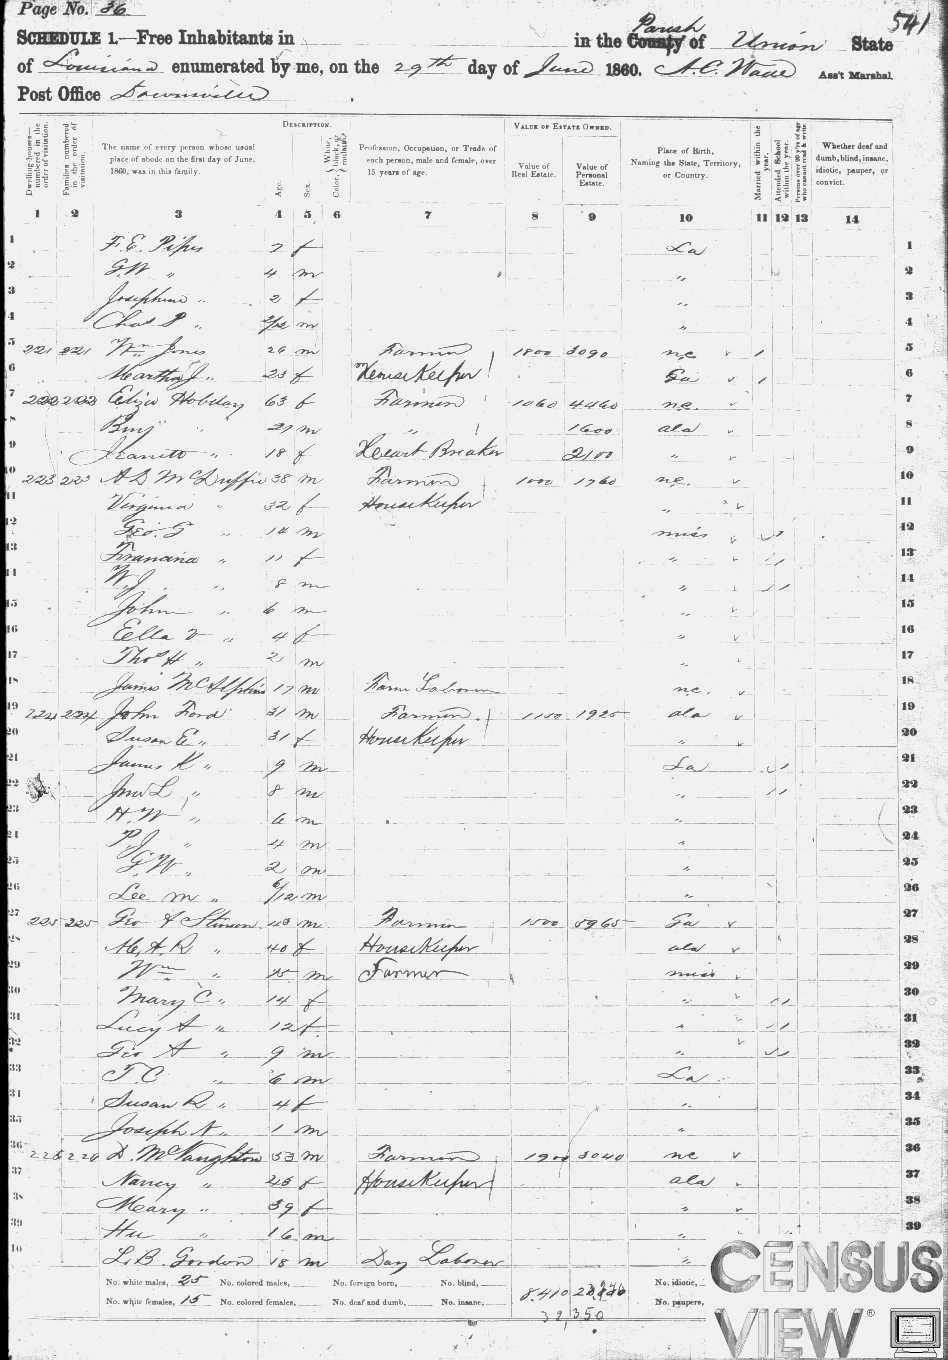 Page No. 36
541
SCHEDULE 1.—Free Inhabitants in in the County Parish of Union State
of Louisiana enumerated by me, on the 29th day of June 1860. A. C. Wade Ass't Marshal.
Post Office Downsville
DESCRIPTION. VALUE OF ESTATE OWNED.
Dwelling-houses—numbered in the order of visitation.
Families numbered in the order of visitation.
The name of every person whose usual place of abode on the first day of June, 1860, was in this family.
Age.
Sex.
Color, White, black, or mulatto.
Profession, Occupation, or Trade of each person, male and female, over 15 years of age.
Value of Real Estate.
Value of Personal Estate.
Place of Birth, Naming the State, Territory, or Country.
Married within the year.
Attended School within the year.
Persons over 20 y'rs of age who cannot read & write.
Whether deaf and dumb, blind, insane, idiotic, pauper, or convict.
1 2 3 4 5 6 7 8 9 10 11 12 13 14
1 F. E. Pipes 7 f La 1
2 G. W. " 4 m " 2
3 Josephine " 2 f " 3
4 Chas P " m " 4
5 221 221 Wm Jones 26 m Farmer 1800 3090 nc 1 5
6 Martha J " 23 f House Keeper Ga 1 6
7 222 222 Eliza Hobday 63 f Farmer 1060 4460 nc. 7
8 Benj " 27 m " 1600 ala 8
9 " 18 f Heart Breaker 2100 " 9
10 223 223 A D McDuffie 38 m Farmer 1000 1760 nc. 10
11 Virginia " 32 f House Keeper " 11
12 Geo S " 14 m miss 12
13 " 11 f " 13
14 W. J " 8 m " 14
15 John " 6 m " 15
16 Ella V " 4 f " 16
17 Thos H " 2 m " 17
18 James McAlphin 17 m Farm Laborer nc. 18
19 224 224 John Ford 31 m Farmer 1150 1925 ala 19
20 Susan E " 31 f House Keeper " 20
21 James K " 9 m La 21
22 Jno L " 8 m " 22
23 H. W " 6 m " 23
24 P. J " 4 m " 24
25 G. W " 2 m " 25
26 Lee m " 6/12 m " 26
27 225 225 Geo A Stinson 43 m Farmer 1500 5965 Ga 27
28 M. A. R " 40 f House Keeper ala 28
29 Wm " 15 m Farmer miss 29
30 Mary C " 14 f " 30
31 Lucy A " 12 f " 31
32 Geo A " 9 m " 32
33 T. C " 6 m La 33
34 Susan R " 4 f " 34
35 Joseph N " 1 m " 35
36 226 226 D. McNaughton 53 m Farmer 1900 3040 nc 36
37 Nancy " 45 f House Keeper ala 37
38 Mary " 39 f " 38
39 " 16 m " 39
40 L. B. Gordon 18 m Day Laborer "
No. white males, 25 No. colored males, No. foreign born, No. blind, No. idiotic,
No. white females, 15 No. colored females, No. deaf and dumb, No. insane, 8.410 No. paupers,
32,350
CENSUS
VIEW®